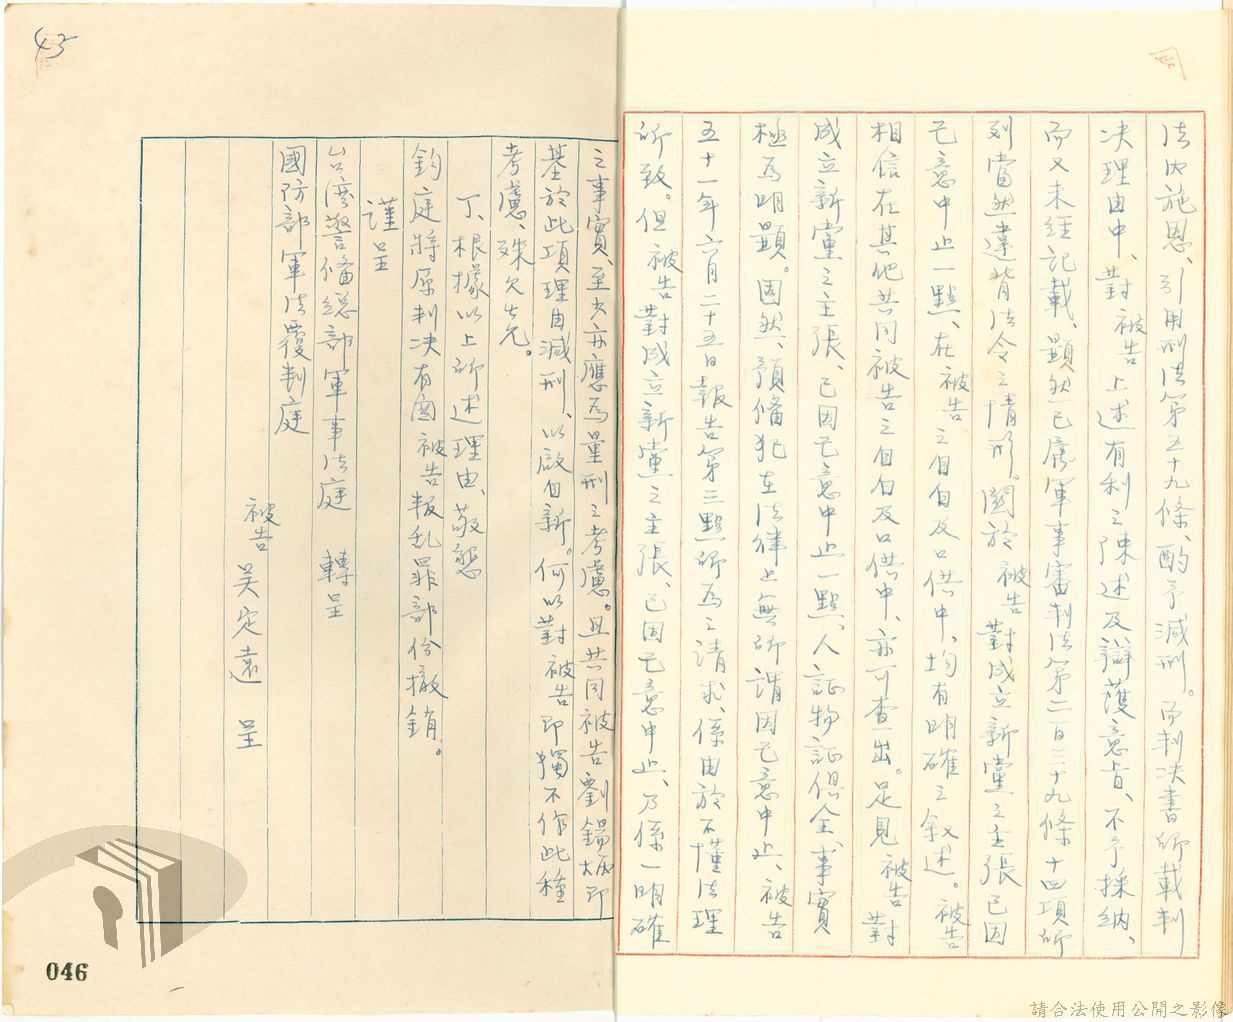 法內施恩、引用刑法第五十九條、酌予減刑。而判決書所載判
決理由中、對被告上述有利之陳述及辯護意旨、不予採納、
而又未經記載、顯然已屬軍事審判法第二百三十九條十四項所
列當然違背法令之情形。關於被告對成立新黨之主張已因
己意中止一點、在被告之自白及口供中、均有明確之敘述。被告
相信在其他共同被告之自白及口供中、亦可查出。足見被告對
成立新黨之主張、已因己意中止一點、人証物証俱全、事實
極為明顯。固然、預備犯在法律上無所謂因己意中止、被告
五十一年六月二十五日報告第三點所為之請求、係由於不懂法理
所致。但被告對成立新黨之主張、已因己意中止、乃係一明確
之事實、至少亦應為量刑之考慮。且共同被告劉錫即
基於此項理由減刑、以啟自新。何以對被告即獨不作此種
考慮、殊欠公允。
丁、根據以上所述理由、敬懇
鈞庭將原判決有關被告叛乱罪部份撤銷。
謹呈
台湾警備總部軍事法庭 轉呈
國防部軍法覆判庭
被告 吴定遠 呈
45
046
請合法使用公開之影像